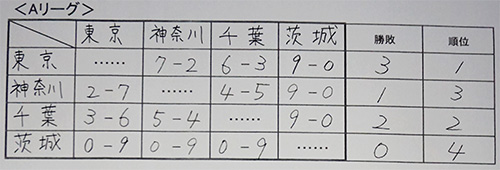 <Aリーグ>
東京 神奈川 千葉 茨城 勝敗 順位
東京 …… 7-2 6-3 9-0 3 1
神奈川 2-7 …… 4-5 9-0 1 3
千葉 3-6 5-4 …… 9-0 2 2
茨城 0-9 0-9 0-9 …… 0 4